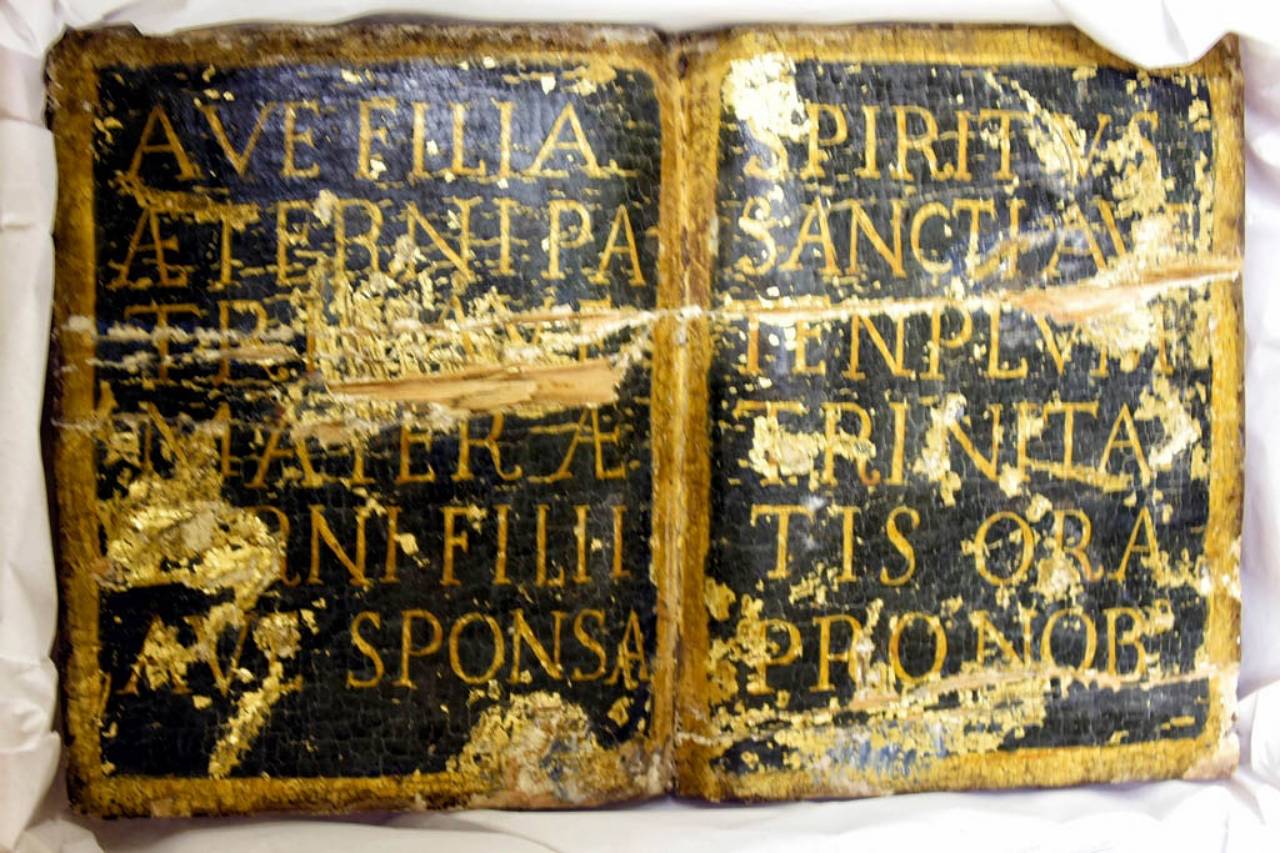 AVE FILIA
ÆTERNI PA
TRI AVE
MATER Æ
RNI FILII
AVE SPONSA
SPIRITVS
SANCTI AVE
TENPLVM
TRINITA
TIS ORA
PRO NOB